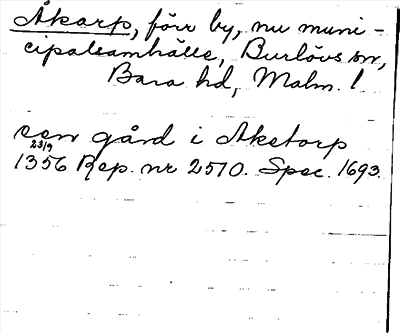 Åkarp, förr by, nu muni-
cipalsamhälle, Burlövs sn,
Bara hd, Malm. l
een gård i Aketorp
23/9
1356 Rep. nr 2570. Spec. 1693.